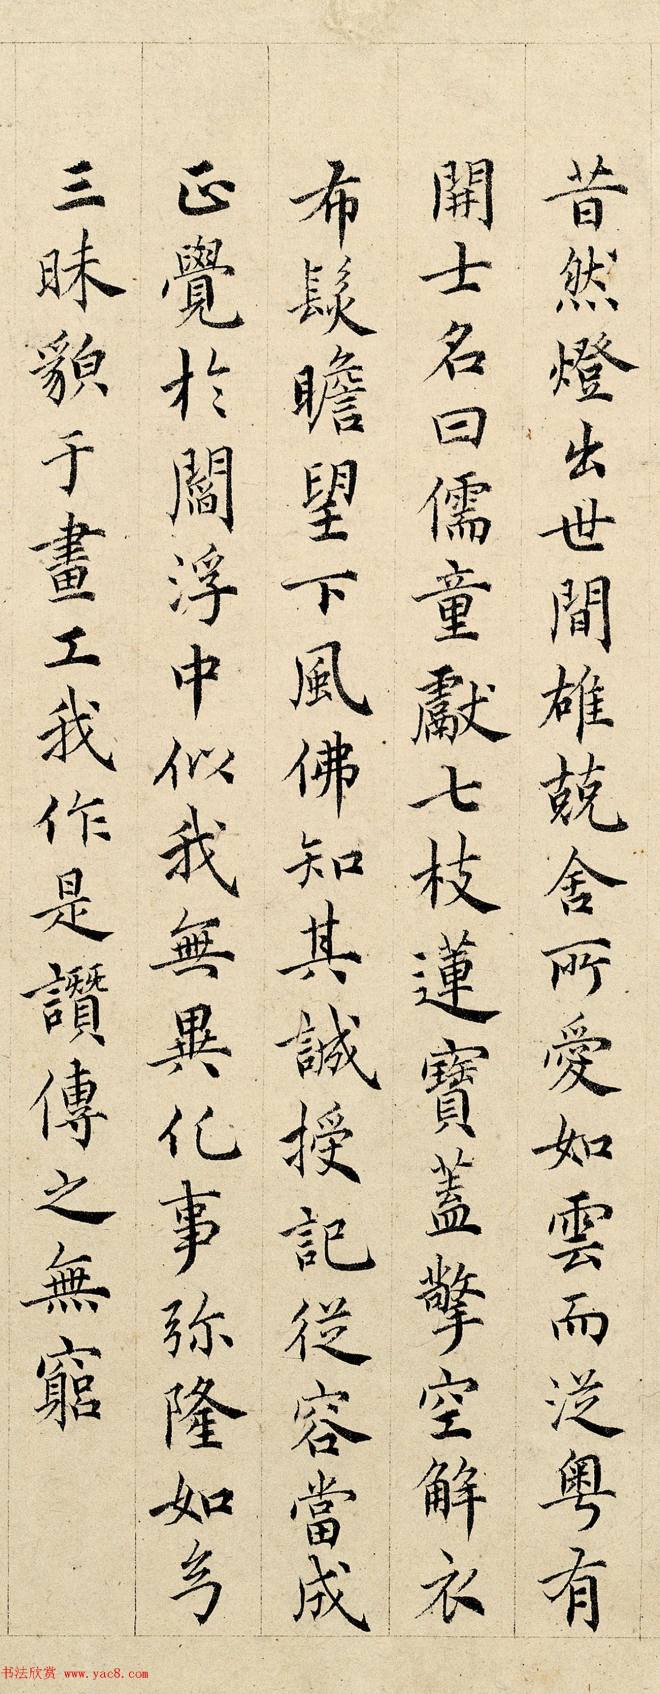 昔然燈出世間雄兢舍所愛如雲而從粤有
開士名曰儒童獻七枝蓮寶蓋擎空解衣
布髮瞻望下風佛知其誠授記從容當成
正覺於閻浮中似我無異化事弥隆如兮
三昧貌于畫工我作是讚傳之無窮
书法欣赏 www.yac8.com